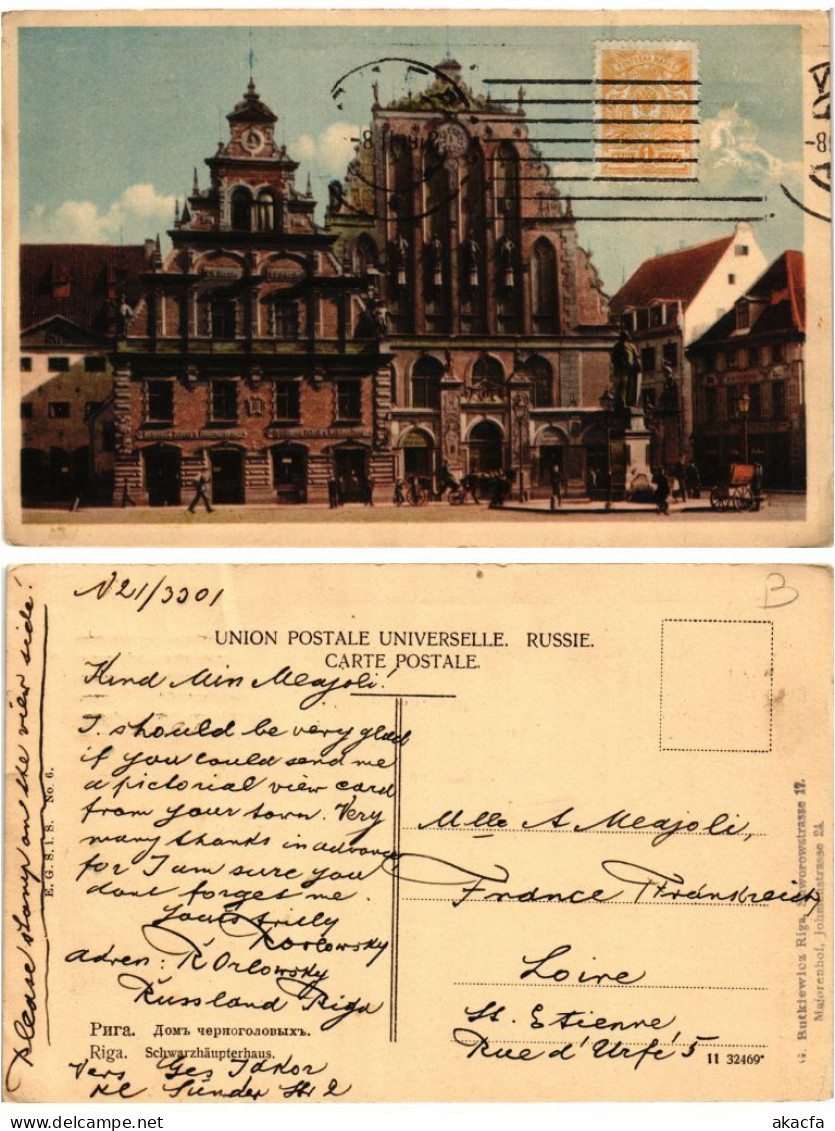 N21/3301
B
UNION POSTALE UNIVERSELLE. RUSSIE.
CARTE POSTALE.
Kind Miss Meajoli!
I should be very glad
if you could send me
a pictorial view card
from your town. Very
many thanks in advance
for I am sure you
dont forget me.
Yours truly
R Orlowsky
adress: R Orlowsky
Russland Riga
Рига. Домъ черноголовыхъ.
Riga. Schwarzhäupterhaus.
Kl Sünder Str 2
please stamp on the view side!
E. G. S. i. S. No. 6.
Mlle A Meajoli,
France Frankreich
Loire
St. Etienne,
Rue d'Urfé 5
11 32469*
G. Butkiewicz Riga, Suworowstrasse 17.
Majorenhof, Johmenstrasse 24.
akacfa.com
akacfa